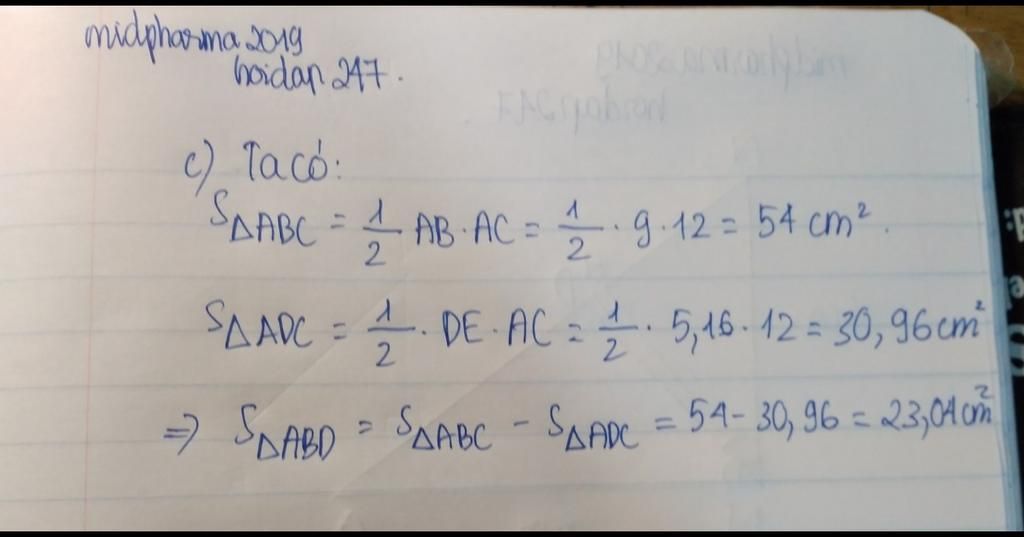 midpharma 2019
hoidap 247.
c) Ta có:
S△ABC = 1/2 AB · AC = 1/2 · 9 · 12 = 54 cm².
S△ADC = 1/2 · DE · AC = 1/2 · 5,16 · 12 = 30,96 cm²
=> S△ABD = S△ABC - S△ADC = 54 - 30,96 = 23,04 cm²